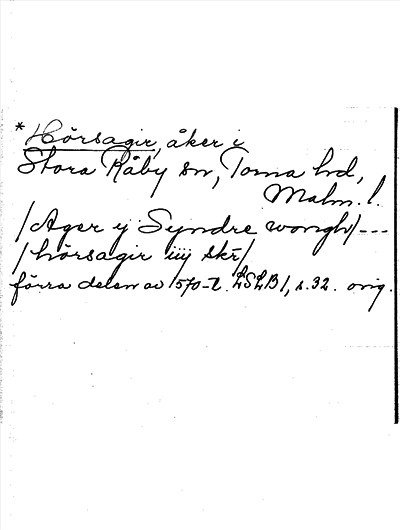 *Hörsagir, åker i
Stora Råby sn, Torna hd,
Malm. l.
/Ager ÿ Syndre wongh/---
/hörsagir iiij skr/
förra delen av 1570-t. LSLB1, s. 32. orig.